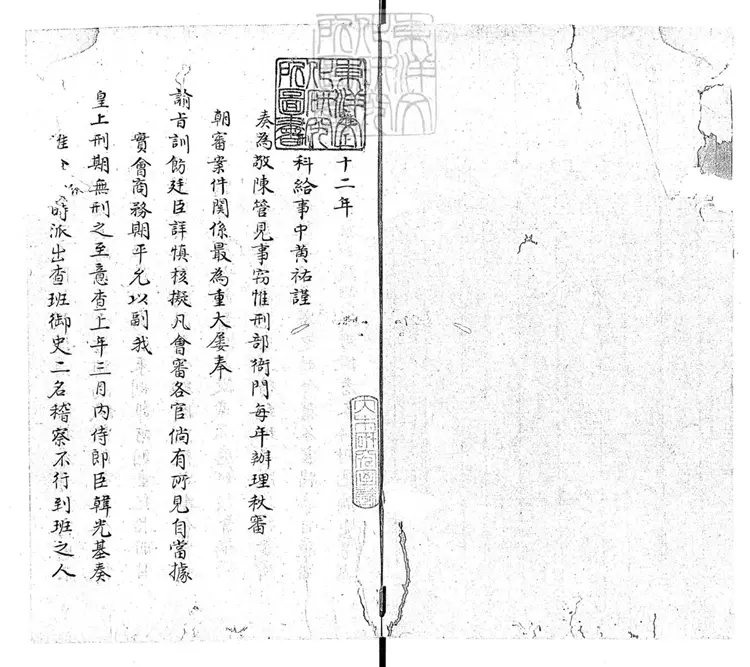 十二年
科給事中黄祐謹
奏為敬陳管見事窃惟刑部衙門每年辦理秋審
朝審案件関係最為重大屡奉
諭旨訓飭廷臣詳慎核擬凡會審各官倘有所見自當據
實會商務期平允以副我
皇上刑期無刑之至意查上年三月内侍郎臣韓光基奏
准
時派出查班御史二名稽察不行到班之人
東洋文
化研究
所圖書